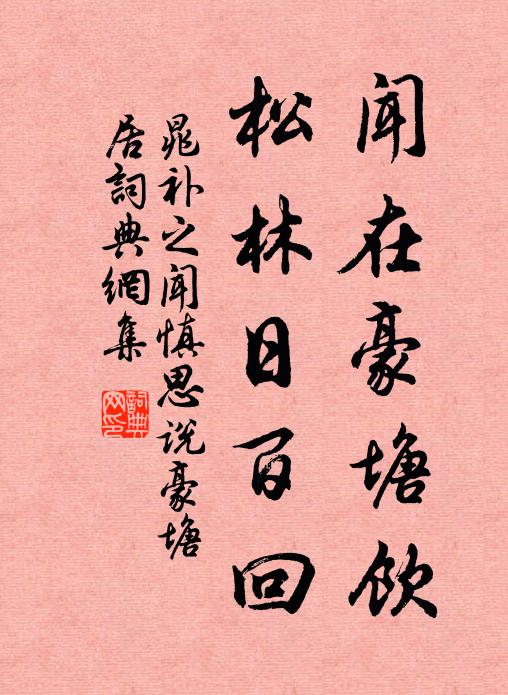 闻在豪塘饮
松林日百回
晁补之闻慎思说豪塘
居词典網集
詞典
网印